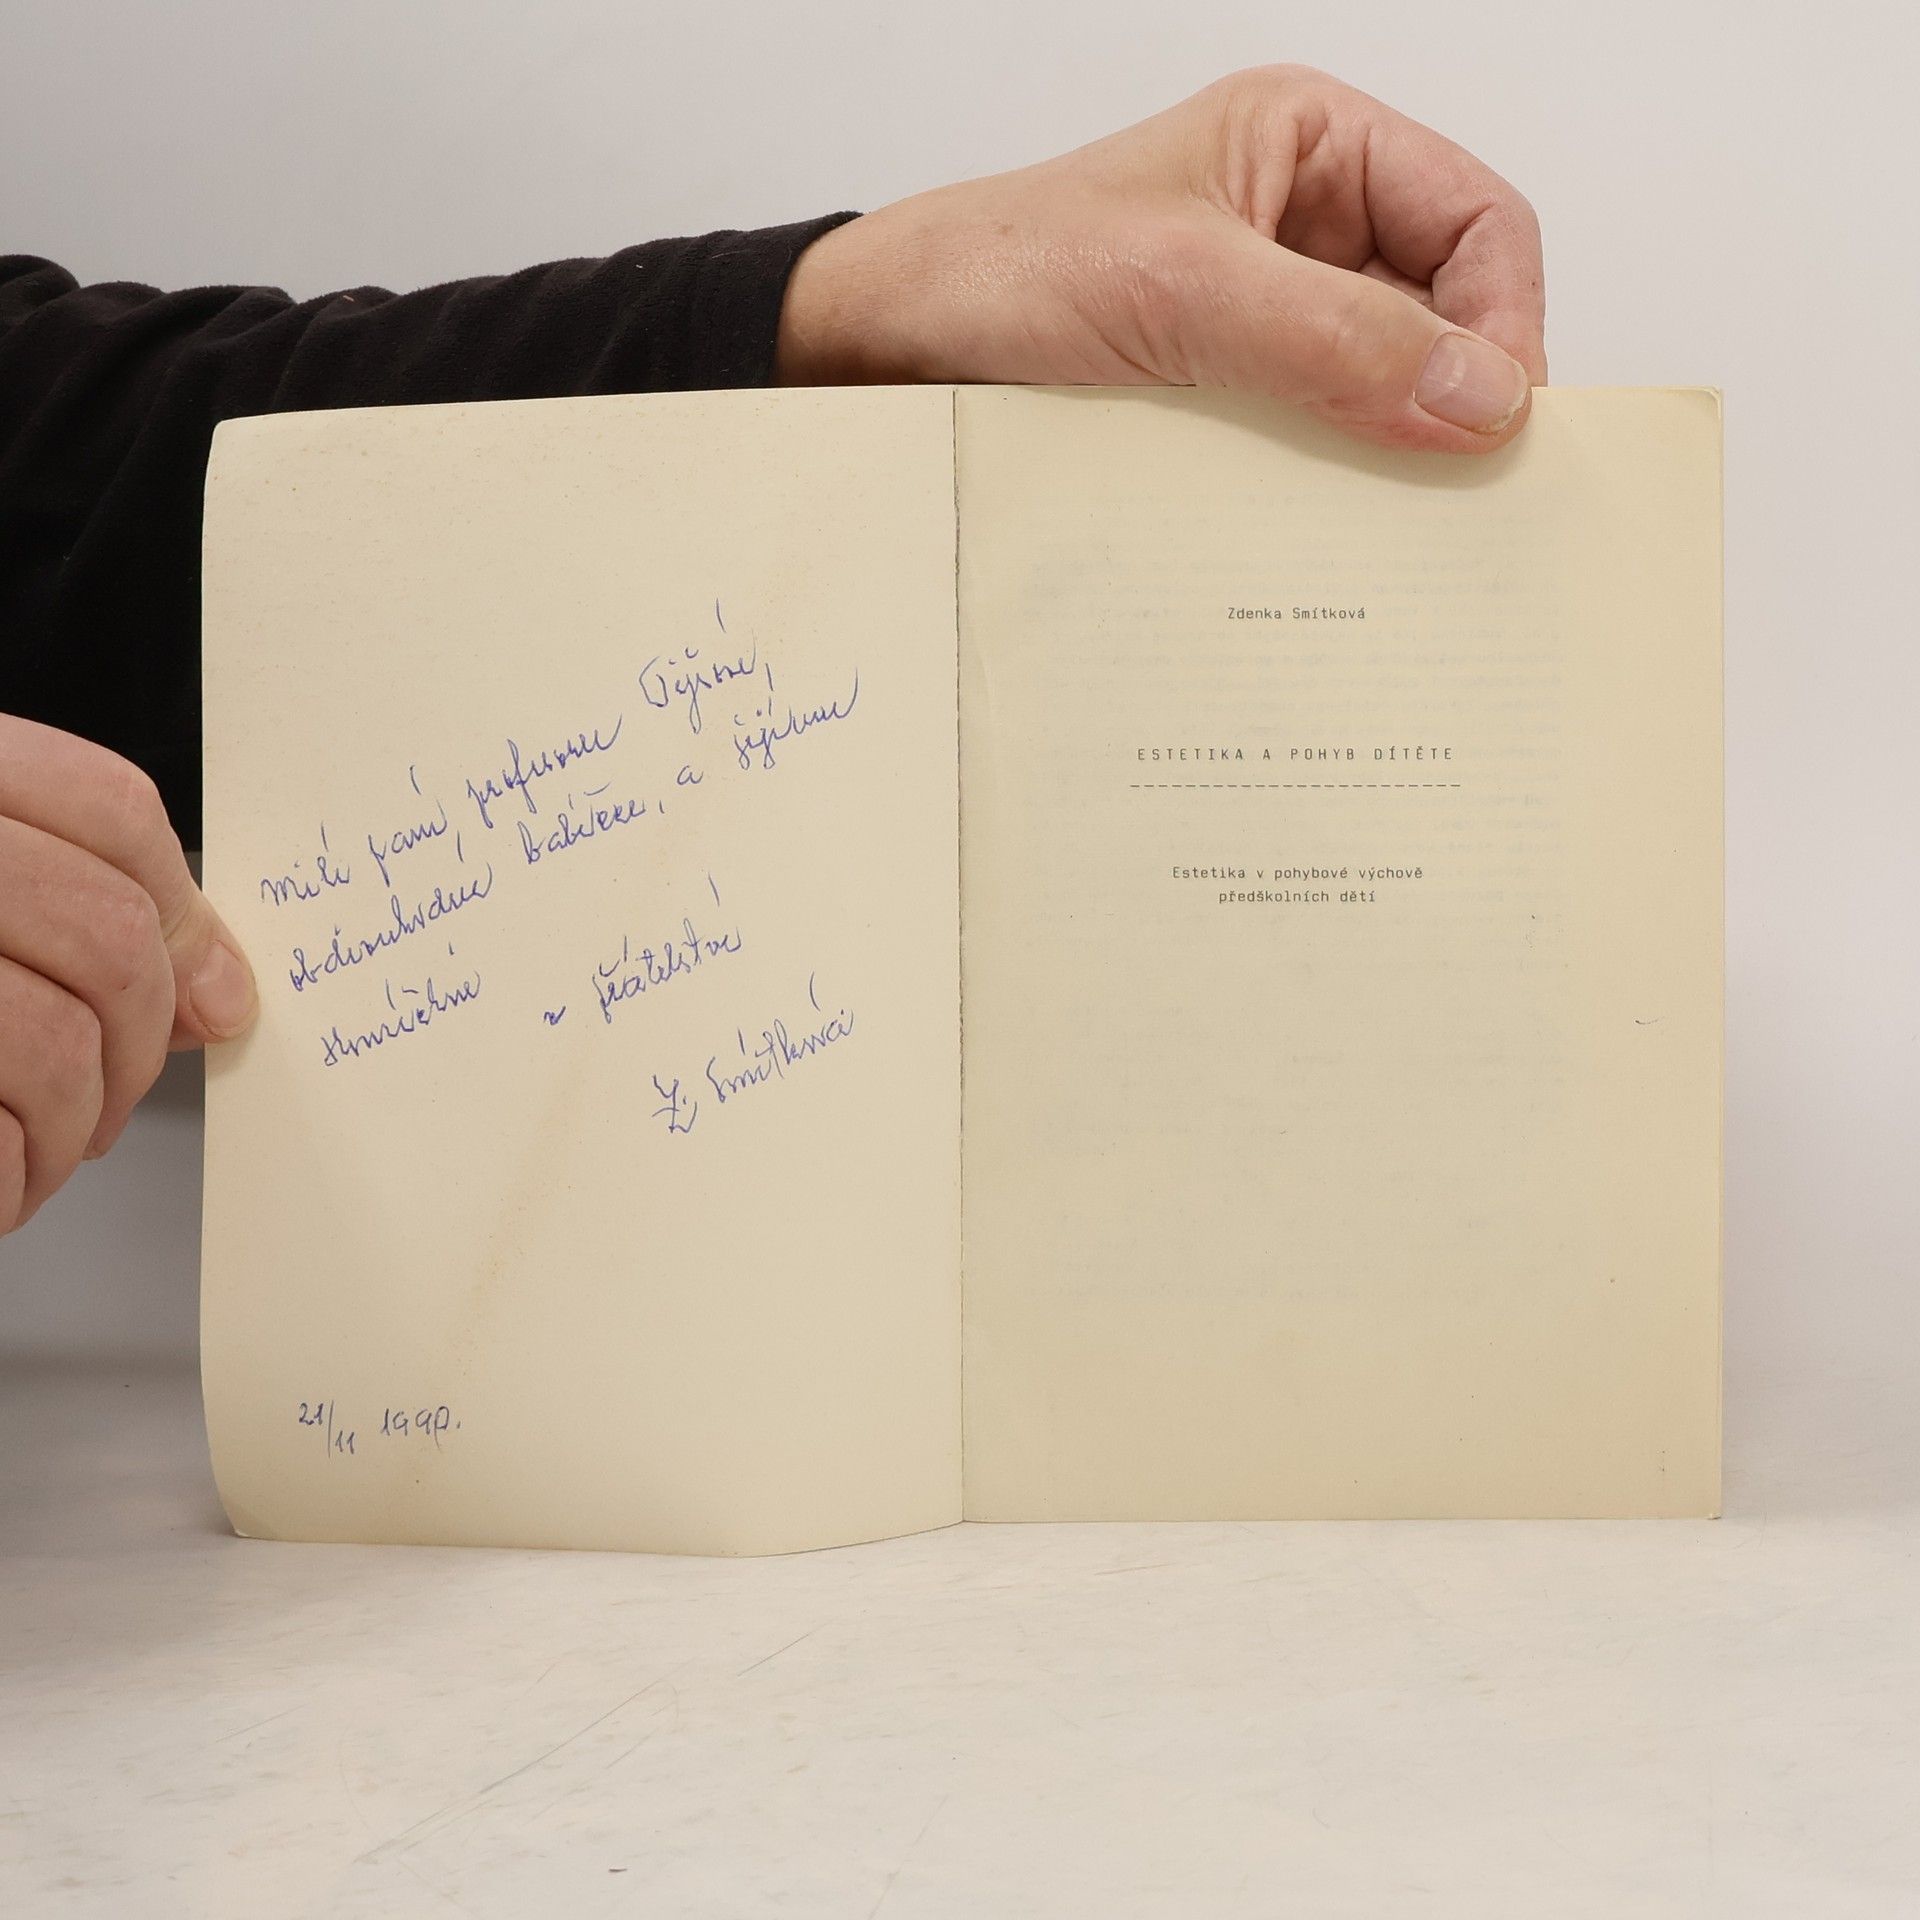 milé paní, profesorce
obdivuhodné babičce, a
z přátelství
Z. Smítková
21/11 1990.
Zdenka Smítková
ESTETIKA A POHYB DÍTĚTE
------------------------
Estetika v pohybové výchově
předškolních dětí